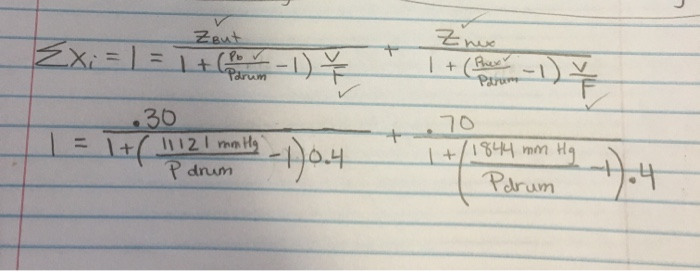 ∑xᵢ = 1 = Z_But / (1 + (P_b / P_drum − 1) V/F) + Z_hex / (1 + (P_hex / P_drum − 1) V/F)
1 = .30 / (1 + (11121 mmHg / Pdrum − 1) 0.4) + .70 / (1 + (1844 mm Hg / Pdrum − 1) .4)